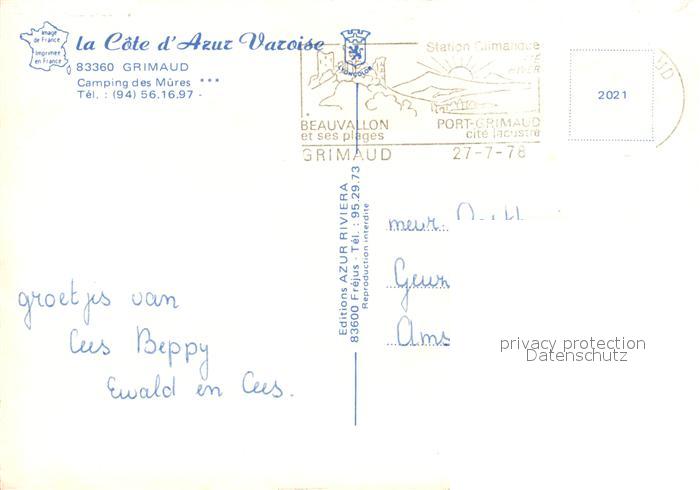 Image
de France
Imprimée
en France
la Côte d'Azur Varoise
83360 GRIMAUD
Camping des Mûres ***
Tél. : (94) 56.16.97 -
LYONCOLOR
Station Climatique
ÉTÉ
HIVER
BEAUVALLON
et ses plages
PORT-GRIMAUD
cité lacustre
GRIMAUD 27-7-78
2021
Editions AZUR RIVIERA
83600 Fréjus - Tél. : 95.29.73
Reproduction interdite
meur.
Geur
Ams
groetjis van
Cees Beppy
Ewald en Cees.
privacy protection
Datenschutz